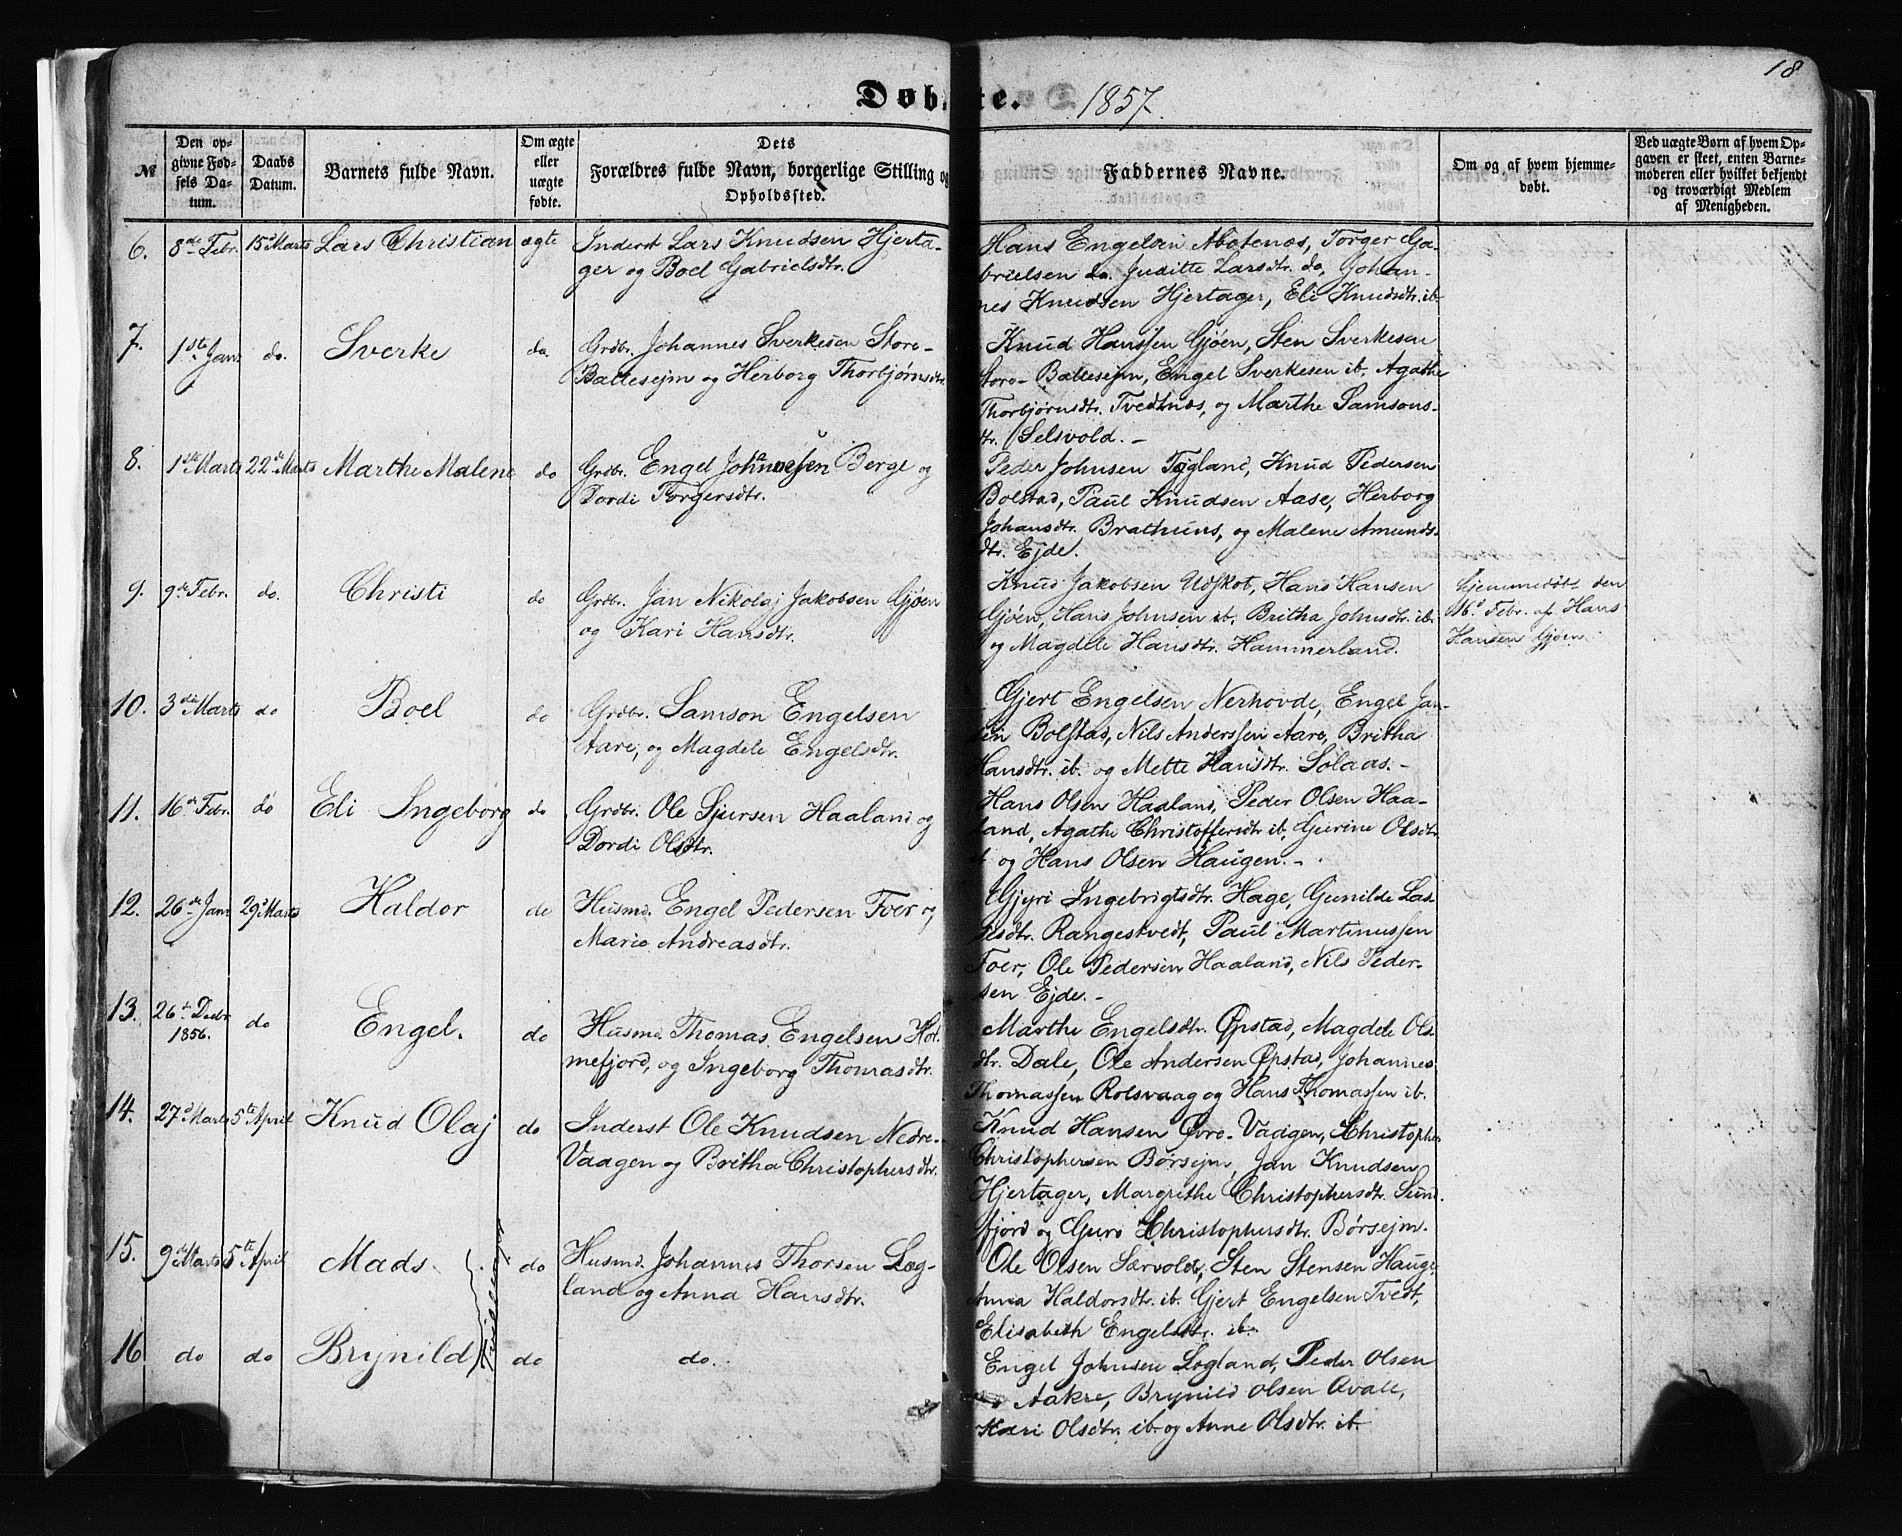 18
Døbte. 1857.
№
Den op-
givne Fød-
sels Da-
tum.
Daabs
Datum.
Barnets fulde Navn.
Om ægte
eller
uægte
fødte.
Dets
Forældres fulde Navn, borgerlige Stilling og
Opholdssted.
Faddernes Navne.
Om og af hvem hjemme-
døbt.
Ved uægte Børn af hvem Op-
gaven er skeet, enten Barne-
moderen eller hvilket bekjendt
og troværdigt Medlem
af Menigheden.
6. 8de Febr. 15d Marts Lars Christian ægte Inderst Lars Knudsen Hjerta-
ger og Boel Gabrielsdtr.
Hans Engelsen Abotenæs, Torger Ga-
brielsen do. Juditte Larsdtr. do, Johan-
nes Knudsen Hjertager, Eli Knudsdtr. ib
7. 1ste Janr do. Sverke do. Grdbr. Johannes Sverkesen Store-
Baltesejm og Herborg Thorbjørnsdtr.
Knud Hanssen Gjøen, Sten Sverkesen
Store-Baltesejm, Engel Sverkesen ib, Agathe
Thorbjørnsdtr. Tvedtnæs, og Marthe Samsons-
dtr. Selsvold.-
8. 1ste Marts 22de Marts Marthe Malene do Grdbr. Engel Johannessen Berge og
Dordi Torgersdtr.
Peder Johnsen Tygland, Knud Pedersen
Bolstad, Paul Knudsen Aase, Herborg
Johansdtr. Brathuus, og Malene Amunds
dtr. Ejde.
9. 9de Febr. do. Christi do Grdbr. Jan Nikolaj Jakobsen Gjøen
og Kari Hansdtr.
Knud Jakobsen Udskot, Hans Hansen
Gjøen, Hans Johnsen ib, Britha Johnsdtr. ib
og Magdele Hansdtr. Hammerland.
Hjemmedøbt den
16d Febr. af Hans
Hansen Gjøen.
10. 3die Marts do Boel do Grdbr. Samson Engelsen
Aare, og Magdele Engelsdtr.
Gjert Engelsen Nerhovde, Engel Jan-
sen Bolstad, Nils Anderssen Aare, Britha
Hansdtr. ib. og Mette Hansdtr. Solaas.-
11. 16de Febr. do Eli Ingeborg do Grdbr. Ole Sjursen Haaland og
Dordi Olsdtr.
Hans Olsen Haaland, Peder Olsen Haa-
land, Agathe Christoffersdtr ib, Gjurine Olsdtr.
ib og Hans Olsen Haugen.-
12. 26de Janr 29d Marts Haldor do Husmd. Engel Pedersen Foer og
Marie Andreasdtr.
Gjyri Ingebrigtsdtr. Hage, Gunilde Las-
sesdtr. Rangestvedt, Paul Martinussen
Foer, Ole Pedersen Haaland, Nils Peder-
sen Ejde.-
13. 26de Decbr
1856. do Engel. do Husmd. Thomas Engelsen Hol-
mefjord, og Ingeborg Thomasdtr.
Marthe Engelsdtr. Øpstad, Magdele Ols-
dtr. Dale, Ole Andersen Øpstad, Johannes
Thomassen Rolsvaag og Hans Thomassen ib.
14. 27d Marts 5te April Knud Olaj do Inderst Ole Knudsen Nedre-
Vaagen og Britha Christophersdtr.
Knud Hansen Øvre-Vaagen, Christopher
Christophersen Børsejm, Jan Knudsen
Hjertager, Margrethe Christophersdtr. Sund-
fjord og Guro Christophersdtr. Børsejm.
15. 9de Marts 5te April Mads. do Husmd. Johannes Thorsen Løg-
land og Anna Hansdtr.
Ole Olsen Særvold, Sten Stensen Hauge,
Anna Haldorsdtr. ib. Gjert Engelsen Tvedt,
Elisabeth Engelsdtr. ib.
16 do do Brynild do do.
Engel Johnsen Løgland, Peder Olsen
Aakre, Brynild Olsen Qvale,
Kari Olsdtr. ib. og Anne Olsdtr. ib